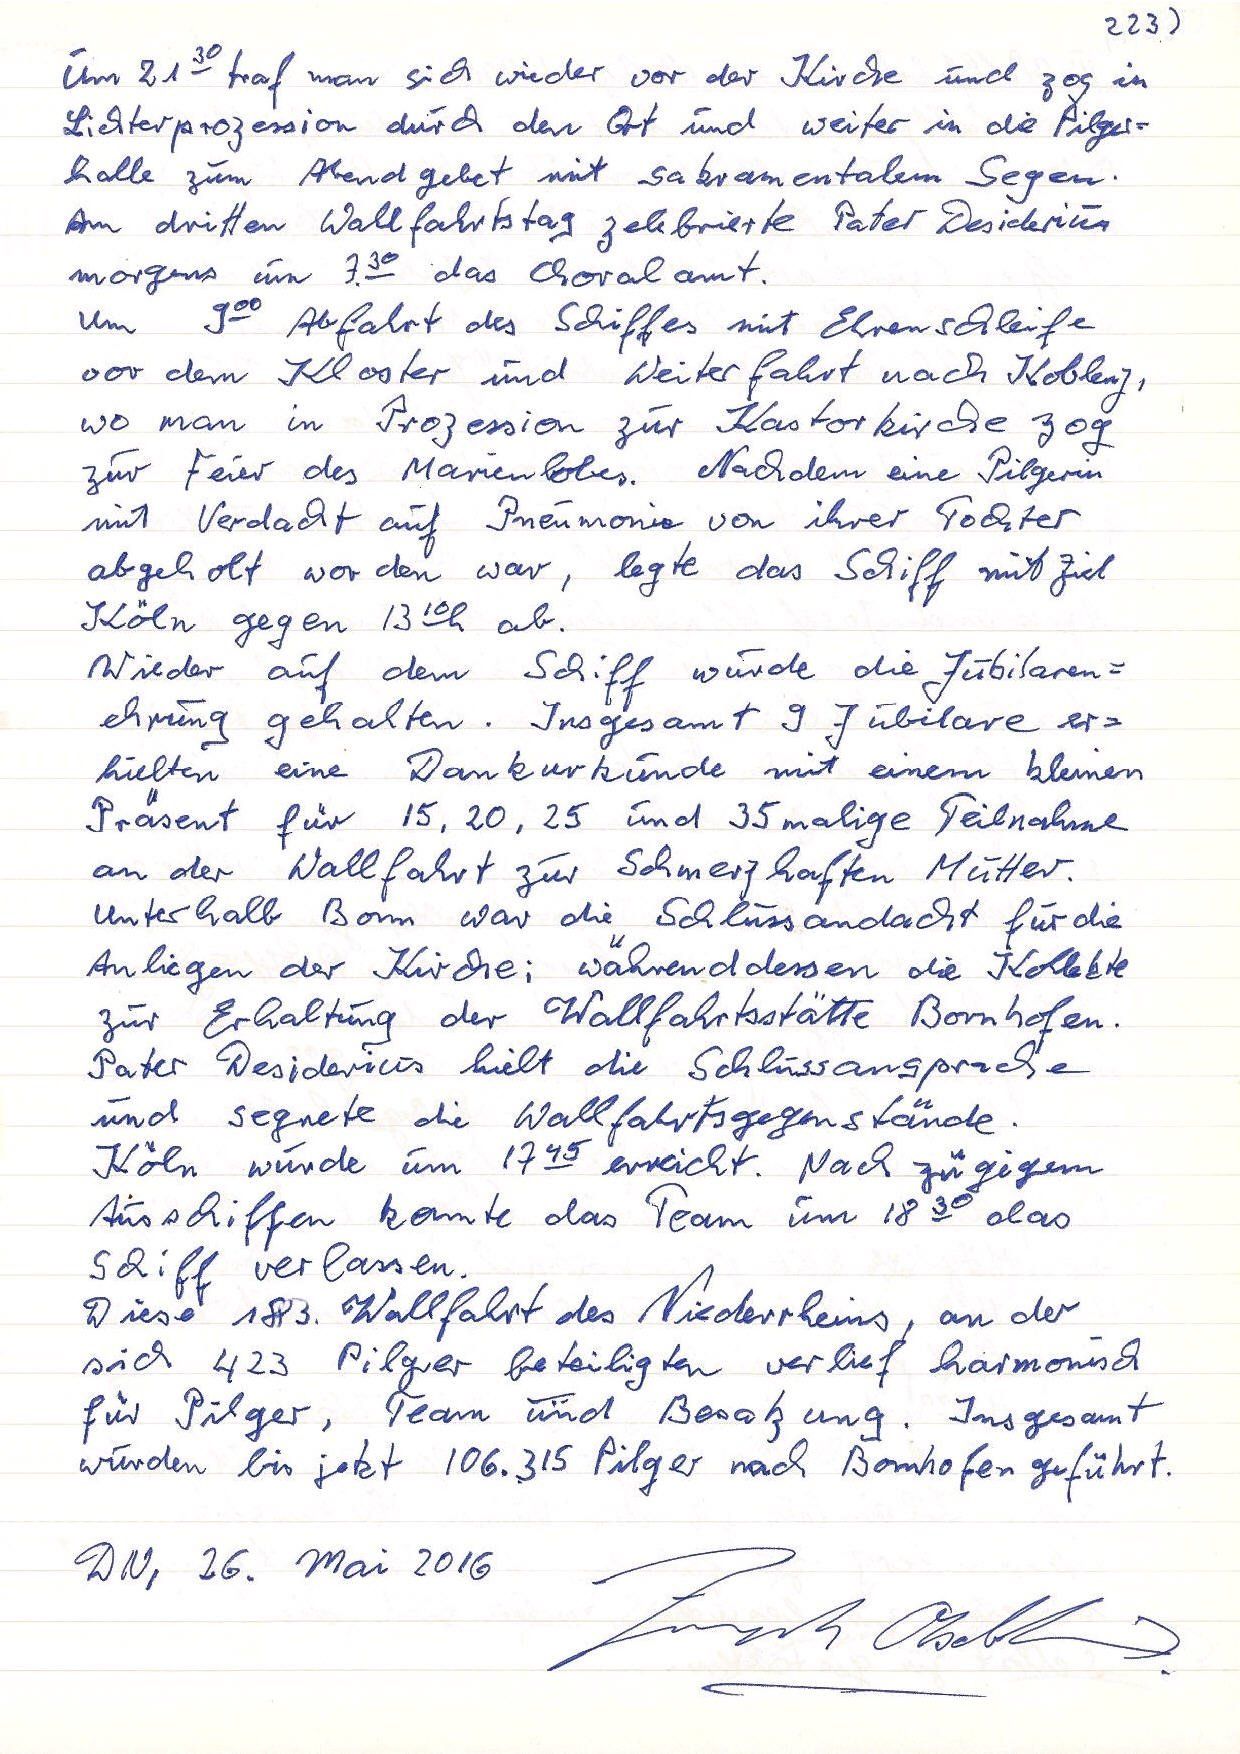 223)
Um 21 30 traf man sich wieder vor der Kirche und zog in
Lichterprozession durch den Ort und weiter in die Pilger=
halle zum Abendgebet mit sakramentalem Segen.
Am dritten Wallfahrtstag zelebrierte Pater Desiderius
morgens um 7.30 das Choralamt.
Um 9 00 Abfahrt des Schiffes mit Ehrenschleife
vor dem Kloster und Weiterfahrt nach Koblenz,
wo man in Prozession zur Kastorkirche zog
zur Feier des Marienlobes. Nachdem eine Pilgerin
mit Verdacht auf Pneumonie von ihrer Tochter
abgeholt worden war, legte das Schiff mit Ziel
Köln gegen 13 10h ab.
Wieder auf dem Schiff wurde die Jubilaren=
ehrung gehalten. Insgesamt 9 Jubilare er=
hielten eine Dankurkunde mit einem kleinen
Präsent für 15, 20, 25 und 35malige Teilnahme
an der Wallfahrt zur Schmerzhaften Mutter.
Unterhalb Bonn war die Schlussandacht für die
Anliegen der Kirche; währenddessen die Kollekte
zur Erhaltung der Wallfahrtsstätte Bornhofen.
Pater Desiderius hielt die Schlussansprache
und segnete die Wallfahrtsgegenstände.
Köln wurde um 17 45 erreicht. Nach zügigem
Ausschiffen konnte das Team um 18 30 das
Schiff verlassen.
Diese 183. Wallfahrt des Niederrheins, an der
sich 423 Pilger beteiligten verlief harmonisch
für Pilger, Team und Besatzung. Insgesamt
wurden bis jetzt 106.315 Pilger nach Bornhofen geführt.
DN, 26. Mai 2016